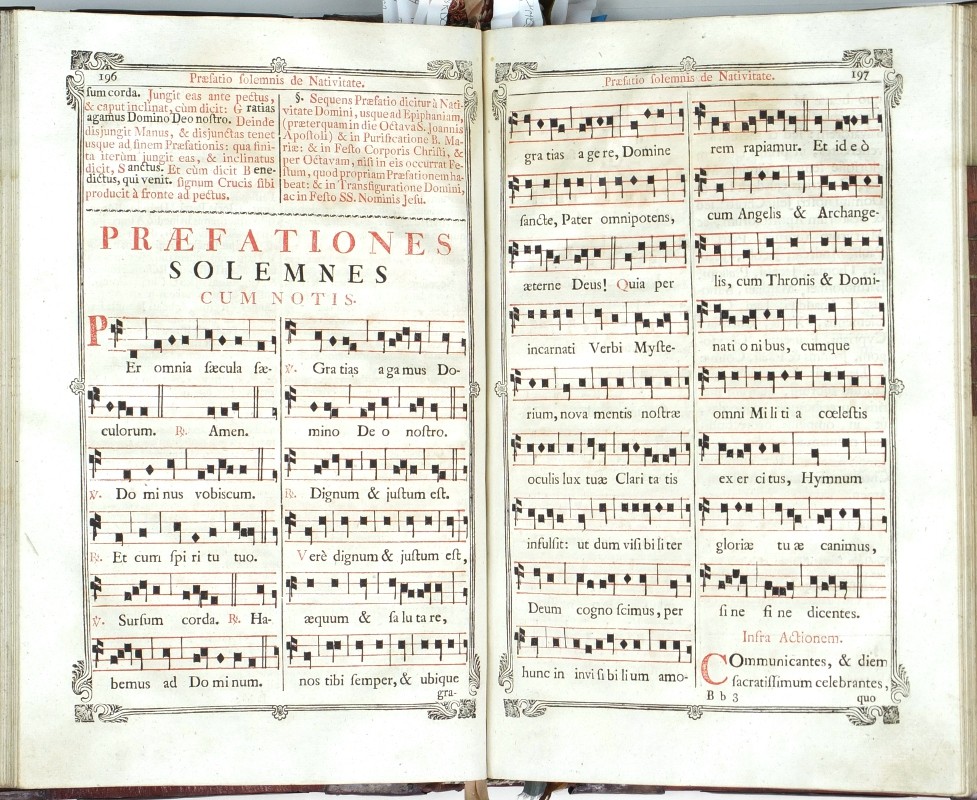 196
Præfatio solemnis de Nativitate.
sum corda. Jungit eas ante pectus,
& caput inclinat, cùm dicit: G ratias
agamus Domino Deo nostro. Deinde
disjungit Manus, & disjunctas tenet
usque ad finem Præfationis: qua fini-
ta iterùm jungit eas, & inclinatus
dicit, S anctus. Et cùm dicit B ene-
dictus, qui venit. signum Crucis sibi
producit à fronte ad pectus.
§. Sequens Præfatio dicitur à Nati-
vitate Domini, usque ad Epiphaniam,
(præterquam in die Octava S. Joannis
Apostoli) & in Purificatione B. Ma-
riæ: & in Festo Corporis Christi, &
per Octavam, nisi in eis occurrat Fe-
stum, quod propriam Præfationem ha-
beat: & in Transfiguratione Domini,
ac in Festo SS. Nominis Jesu.
PRÆFATIONES
SOLEMNES
CUM NOTIS.
PEr omnia sæcula sæ-
culorum. ℟. Amen.
℣. Do mi nus vobiscum.
℟. Et cum spi ri tu tuo.
℣. Sursum corda. ℟. Ha-
bemus ad Do mi num.
℣. Gra tias a ga mus Do-
mino De o nostro.
℟. Dignum & justum est.
Verè dignum & justum est,
æquum & sa lu ta re,
nos tibi semper, & ubique
gra-
Præfatio solemnis de Nativitate.
197
gra tias a ge re, Domine
sancte, Pater omnipotens,
æterne Deus! Quia per
incarnati Verbi Myste-
rium, nova mentis nostræ
oculis lux tuæ Clari ta tis
infulsit: ut dum visi bi li ter
Deum cogno scimus, per
hunc in invi si bi li um amo-
rem rapiamur. Et id e ò
cum Angelis & Archange-
lis, cum Thronis & Domi-
nati o ni bus, cumque
omni Mi li ti a cœlestis
ex er ci tus, Hymnum
gloriæ tu æ canimus,
si ne fi ne dicentes.
Infra Actionem.
COmmunicantes, & diem
sacratissimum celebrantes,
B b 3
quo